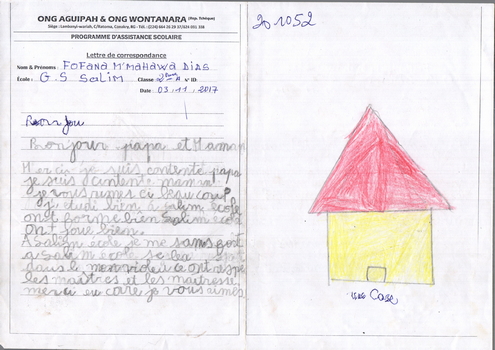 ONG AGUIPAH & ONG WONTANARA (Rep. Tchèque)
Siège : Lambanyi-wariah, C/Ratoma, Conakry, RG - Tél. : (224) 664 26 29 37/624 051 358
PROGRAMME D'ASSISTANCE SCOLAIRE
Lettre de correspondance
Nom & Prénoms : FOFANA M'MAHAWA DIAS
École : G.S Salim Classe 2ème A N° ID
Date : 03.11.2017
Bonjou
Bonjour papa et Maman
Merci je suis contente papa
je suis content maman
je vous
j'etudi bien Salim école
ont forme bien Salim école
ont joue bien.
A Salim école je me sans fort
a Salim école
dans le ont respe
les maitres et les maitresse
merci en care je vous aimes
201052
une Case